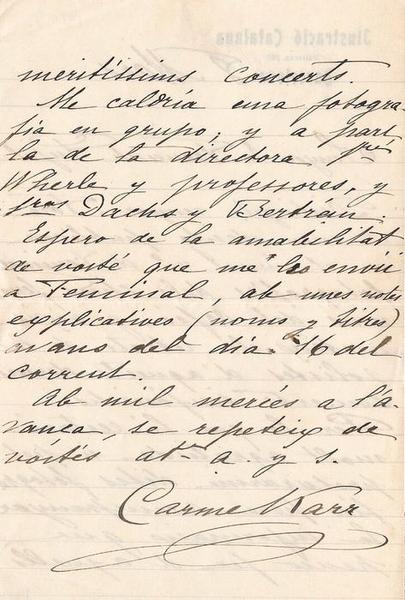 meritíssims concerts.
Me caldría una fotogra-
fía en grupo; y a part
la de la directora
Wherle y professores, y
Sras Dachs y Bertrán.
Espero de la amabilitat
de vosté que me las envii
a Feminal, ab unes notes
explicatives (noms y titres)
avans del dia 16 del
corrent.
Ab mil mercés a l'a-
vança, se repeteix de
vostés atª a. y s.
Carme Karr
Ilustració Catalana